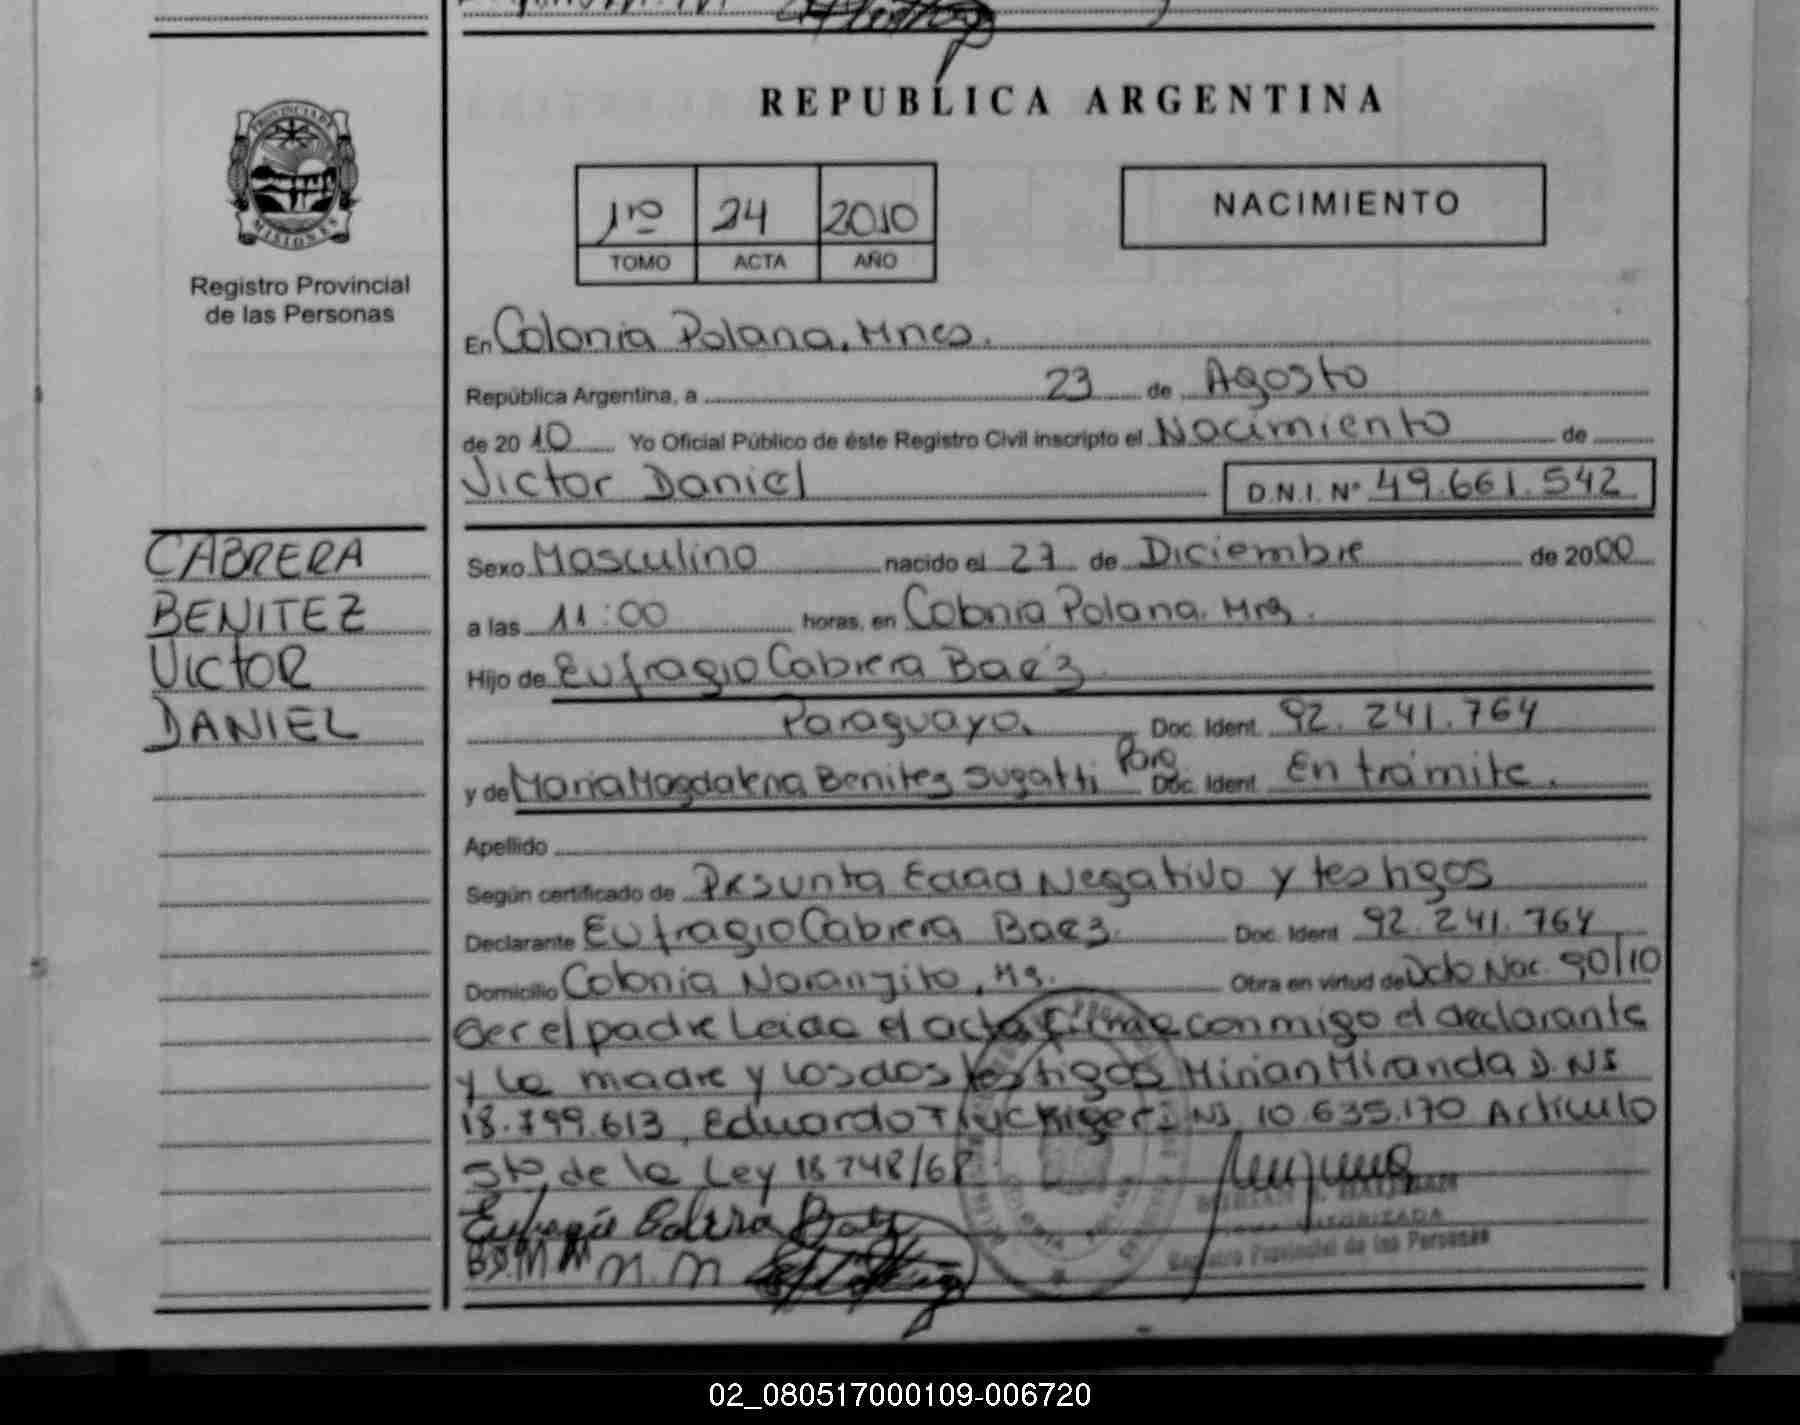 REPUBLICA ARGENTINA
PROVINCIA DE
MISIONES
Registro Provincial
de las Personas
1ro 24 2010
TOMO ACTA AÑO
NACIMIENTO
En Colonia Polana, Mnes.
República Argentina, a 23 de Agosto
de 2010 Yo Oficial Público de éste Registro Civil inscripto el Nacimiento de
Victor Daniel D.N.I. Nº 49.661.542
CABRERA
BENITEZ
VICTOR
DANIEL
Sexo Masculino nacido el 27 de Diciembre de 2000
a las 11:00 horas, en Colonia Polana. Mns.
Hijo de Eufragio Cabrera Baez
Paraguayo. Doc. Ident. 92.241.764
y de Maria Magdalena Benitez Sugatti Para Doc. Ident. En trámite.
Apellido
Según certificado de Presunta Edad Negativo y testigos
Declarante Eufragio Cabrera Baez. Doc. Ident. 92.241.764
Domicilio Colonia Naranjito, Ms. Obra en virtud de Dcto Nac. 90/10
Ser el padre Leida el acta firma conmigo el declarante
y la madre y los dos testigos Mirian Miranda D.NI
18.799.613, Eduardo Fluckiger DNI 10.635.170 Artículo
5to de la Ley 18748/68
Eufragio Cabrera Baez
M.M
Registro Provincial de las Personas
02_080517000109-006720